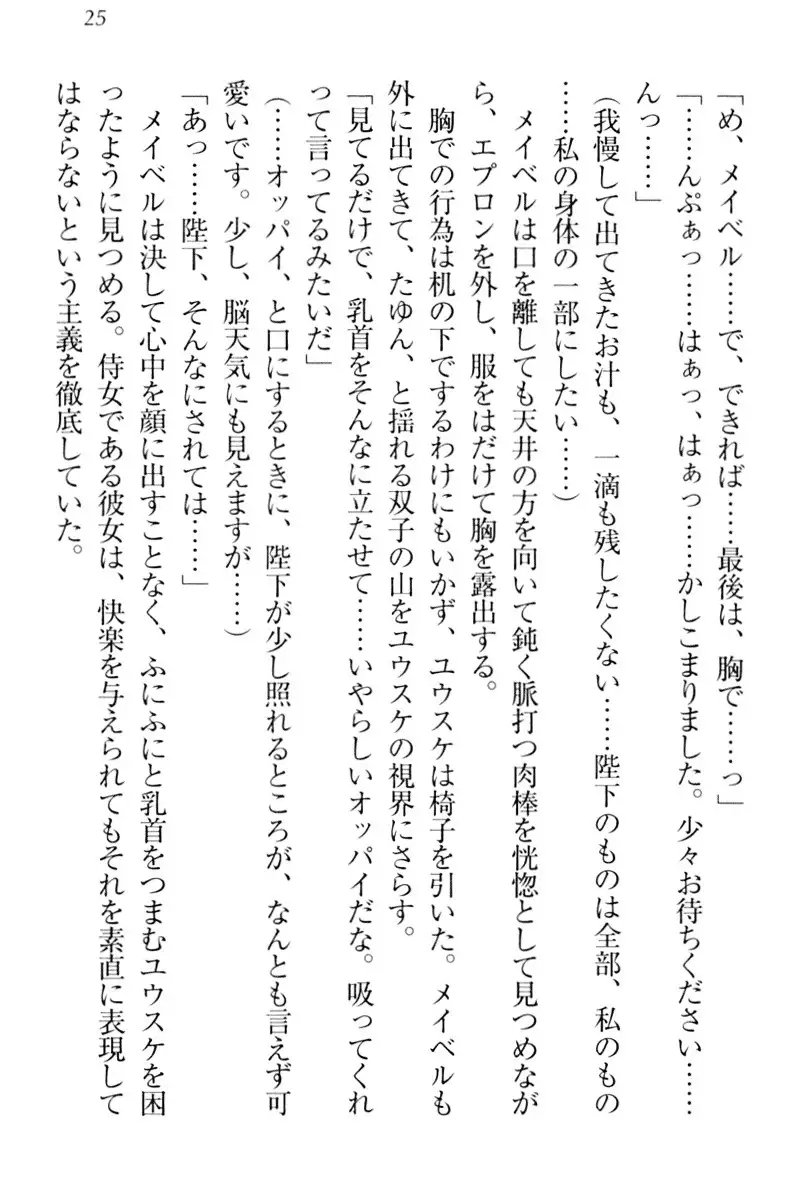 25
「め、メイベル……で、できれば……最後は、胸で……っ」
「……んぷぁっ……はぁっ、はぁっ……かしこまりました。少々お待ちください……
んっ……」
（我慢して出てきたお汁も、一滴も残したくない……陛下のものは全部、私のもの
……私の身体の一部にしたい……）
　メイベルは口を離しても天井の方を向いて鈍く脈打つ肉棒を恍惚として見つめなが
ら、エプロンを外し、服をはだけて胸を露出する。
　胸での行為は机の下でするわけにもいかず、ユウスケは椅子を引いた。メイベルも
外に出てきて、たゆん、と揺れる双子の山をユウスケの視界にさらす。
「見てるだけで、乳首をそんなに立たせて……いやらしいオッパイだな。吸ってくれ
って言ってるみたいだ」
（……オッパイ、と口にするときに、陛下が少し照れるところが、なんとも言えず可
愛いです。少し、脳天気にも見えますが……）
「あっ……陛下、そんなにされては……」
　メイベルは決して心中を顔に出すことなく、ふにふにと乳首をつまむユウスケを困
ったように見つめる。侍女である彼女は、快楽を与えられてもそれを素直に表現して
はならないという主義を徹底していた。